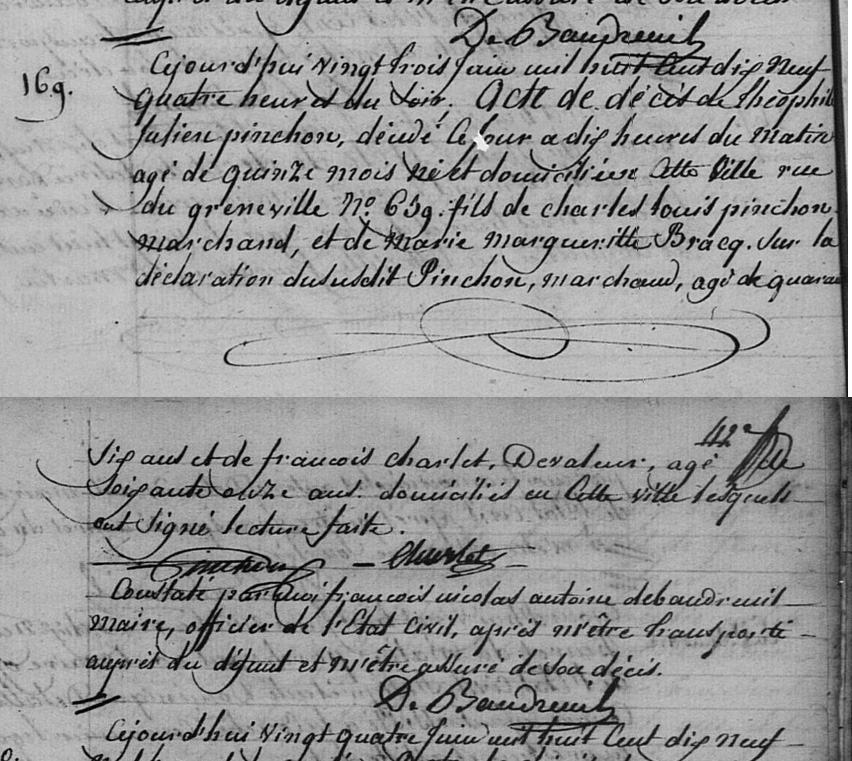 De Baudreuil
169.
Cejourd'hui vingt trois juin mil huit Cent dix Neuf
quatre heures du soir. Acte de décès de théophile
julien pinchon, décédé Ce jour a dix heures du matin
agé de quinze mois né et domicilié en Cette Ville rue
du greneville No. 639. fils de charles louis pinchon
marchand, et de Marie margueritte Bracq. Sur la
déclaration dususdit Pinchon, marchand, agé de quaran
42e
Six ans et de francois charlet, Devaleur, agé de
Soixante onze ans. domiciliés en Cette ville lesquels
ont signé lecture faite.
Pinchon Charlet
Constaté par moi francois nicolas antoine debaudreuil
Maire, officier de l'Etat Civil, après m'être transporté
auprès du défunt et m'être assuré de son décès.
De Baudreuil
Cejourd'hui Vingt quatre juin mil huit Cent dix neuf